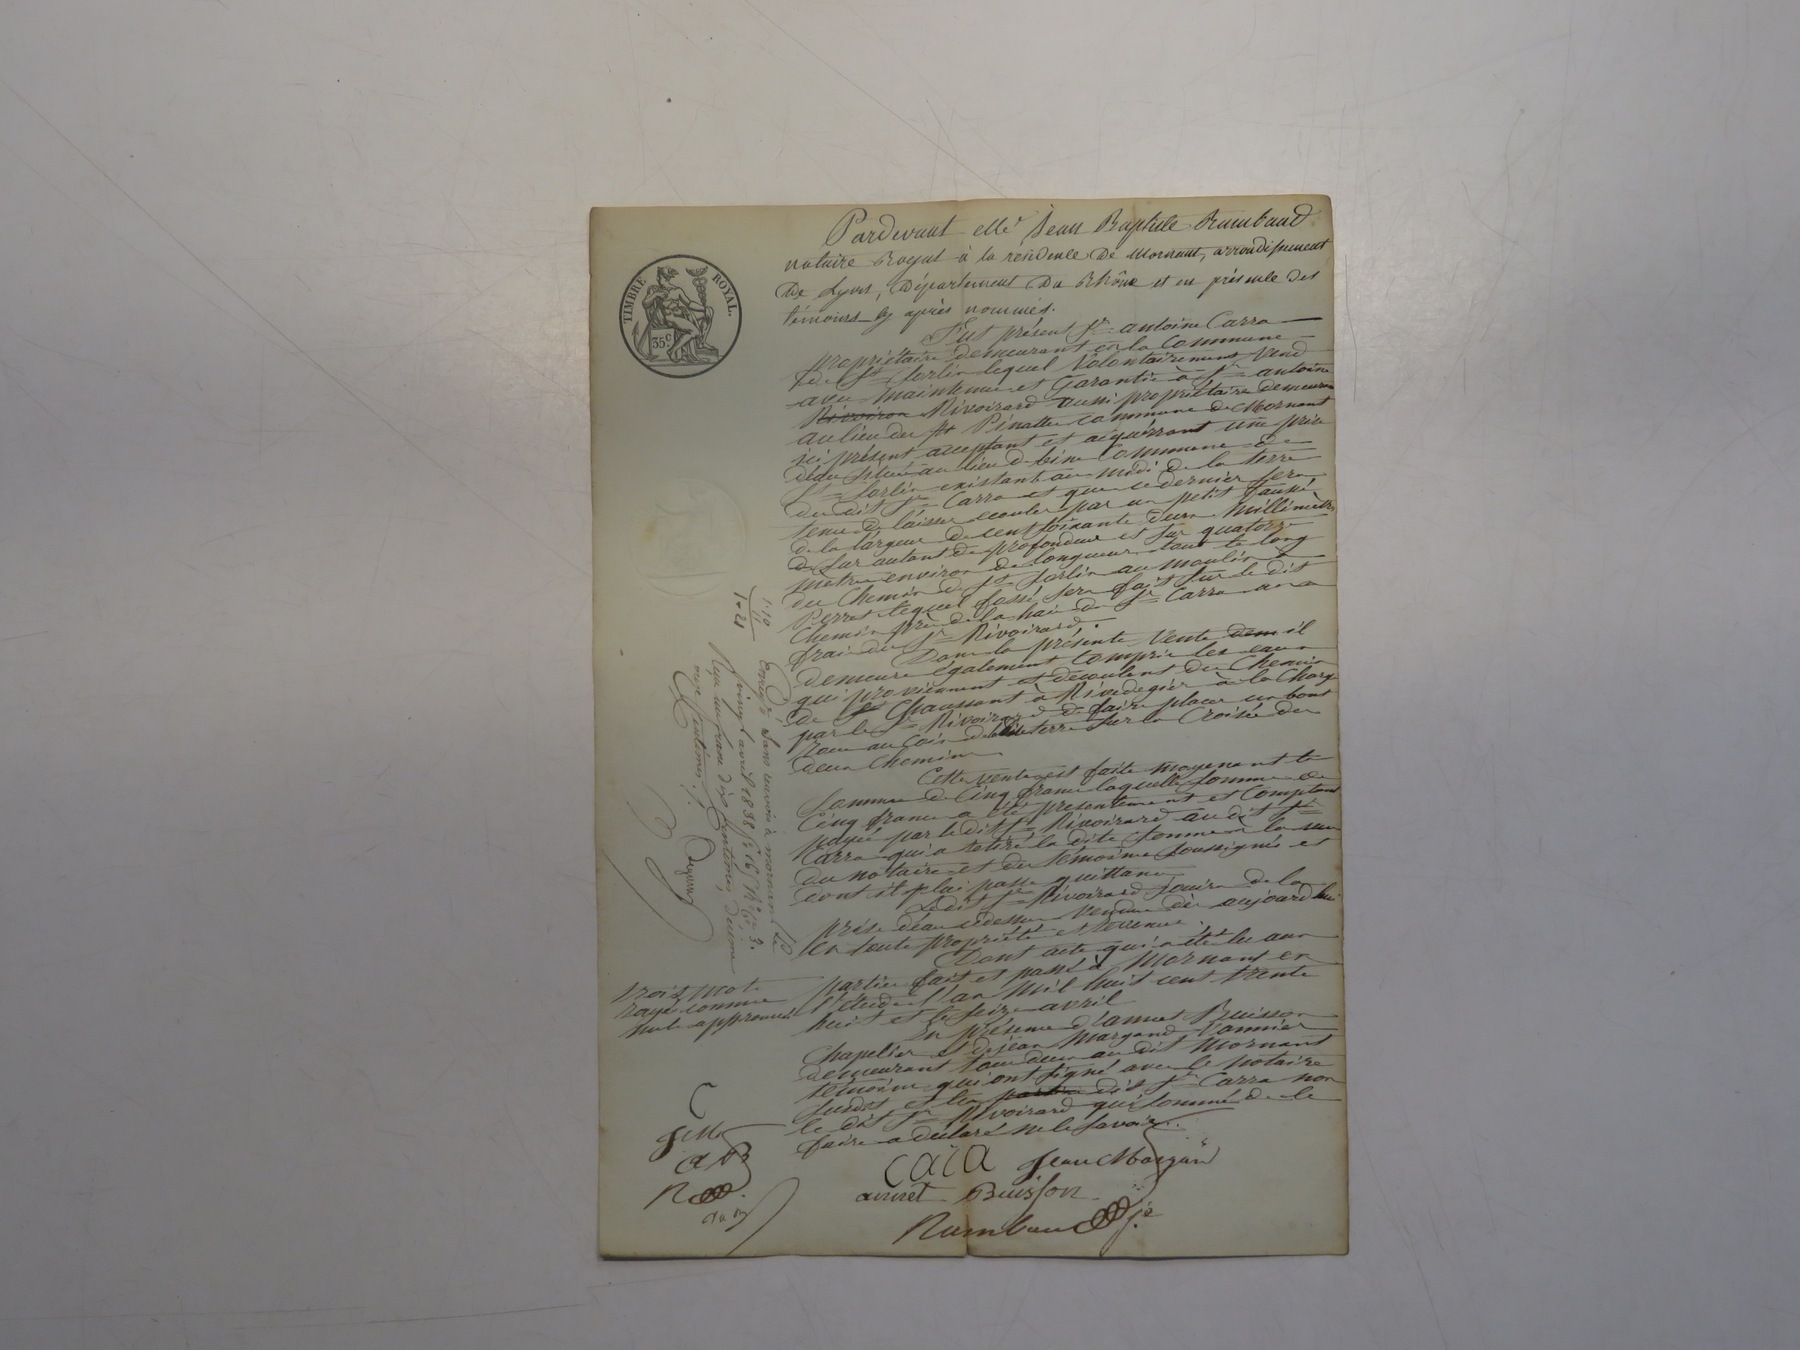 Pardevant Me Jean Baptiste Rambaud
notaire Royal à la résidence de Mornant, arrondissement
De Lyon, Département Du Rhône et en présence des
témoins cy après nommés.
TIMBRE ROYAL.
35c
Fut présent Sr antoine Carra
propriétaire demeurant en la Commune
de St Sorlin lequel Volontairement Vend
avec maintenue et Garantie à Sr antoine
Rivoiron Rivoirard aussi propriétaire demeurant
au lieu du Pinatte Commune de Mornant
ici présent acceptant et acquérrant une prise
d'eau située au lieu de Commune de
St Sorlin existant au midi de la terre
du dit Sr Carra et que ce dernier sera
tenu de laisser écouler par un petit faussé
de la largeur de cent soixante deux Millimètres
de sur autant de profondeur et sur quatorze
mètres environ de longueur tout le long
du Chemin de St Sorlin au moulin à
Perret lequel fossé sera fait sur le dit
Chemin près de la haie du Sr Carra aux
frais du Sr Rivoirard.
Dans la présente Vente dem il
demeure également Compris les eaux
qui proviennent et découlent du Chemin
de Chaussant à Rivedegier à la Charge
par le Sr Rivoirard de faire placer un bout
roue au Coin de terre sur la Croisée des
deux Chemins
Cette vente est faite moyenant la
Somme de Cinq francs laquelle Somme de
Cinq francs a été présentement et Comptant
payée par le dit Sr Rivoirard au dit Sr
Carra qui a retiré la dite Somme à la vue
du notaire et des témoins soussignés et
dont il lui passe quittance
Le dit Sr Rivoirard Jouira de la
prise d'eau cidessus Vendue dès aujourd'hui
en toute propriété et Revenus.
Dont acte qui a été lu aux
parties fait et passé à Mornant en
l'étude l'an Mil huit cent trente
huit et le seize avril
En présence d'annet Buisson
Chapelier et de jean Margand Vannier
demeurant tous deux au dit Mornant
témoins qui ont signé avec le notaire
Susdit et les parties dit Sr Carra non
le dit Sr Rivoirard qui sommé de le
faire a déclaré ne le Savoir.
trois mots
rayé comme
nuls approuvé
1.10
11
1.21
Enregé Sans renvois à mornant Le
Vingt avril 1838 fo 16 Vo Ce 3.
Reçu un franc dix Centimes, décime
onze Centimes.
Cara
Jean Margand
annet Buisson
Rambaud